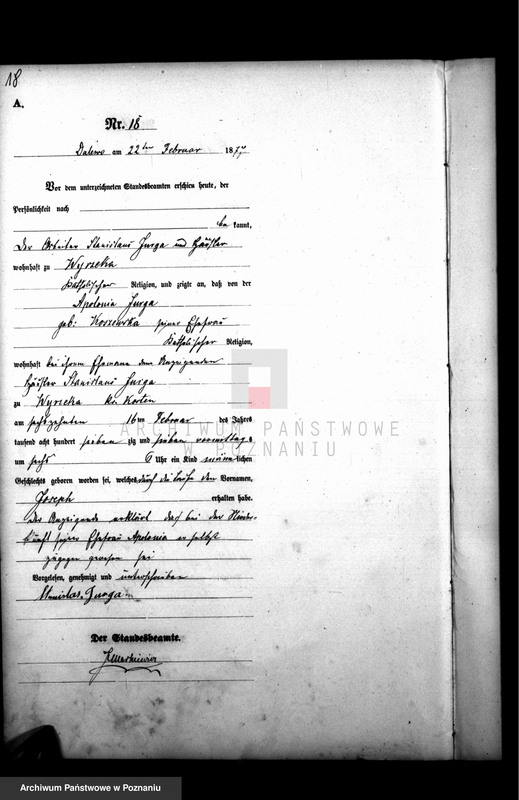 18
A.
Nr. 18
Dalewo am 22ten Februar 1877
Vor dem unterzeichneten Standesbeamten erschien heute, der
Persönlichkeit nach
be kannt,
Der Arbeiter Stanislaus Jurga und Häusler
wohnhaft zu Wyrzeka
Katholischer Religion, und zeigte an, daß von der
Apolonia Jurga
geb: seiner Ehefrau
Katholischer Religion,
wohnhaft bei ihrem Ehemann dem Anzeigenden
Häusler Stanislaus Jurga
zu Wyrzeka
am sechszehnten 16ten Februar des Jahres
tausend acht hundert sieben zig und sieben vormittags
um sechs 6 Uhr ein Kind männlichen
Geschlechts geboren worden sei, welches durch die Taufe den Vornamen,
Joseph erhalten habe.
Der Anzeigende erklärt daß bei der Nieder-
kunft seiner Ehefrau Apolonia er selbst
zugegen gewesen sei
Vorgelesen, genehmigt und unterschrieben
Stanislas Jurga
Der Standesbeamte.
ARCHIWUM PAŃSTWOWE
W POZNANIU
Archiwum Państwowe w Poznaniu